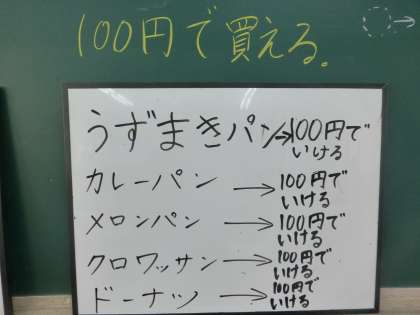 100円で買える。
うずまきパン→100円で
いける
カレーパン → 100円で
いける
メロンパン → 100円で
いける
クロワッサン → 100円で
いける
ドーナツ → 100円で
いける